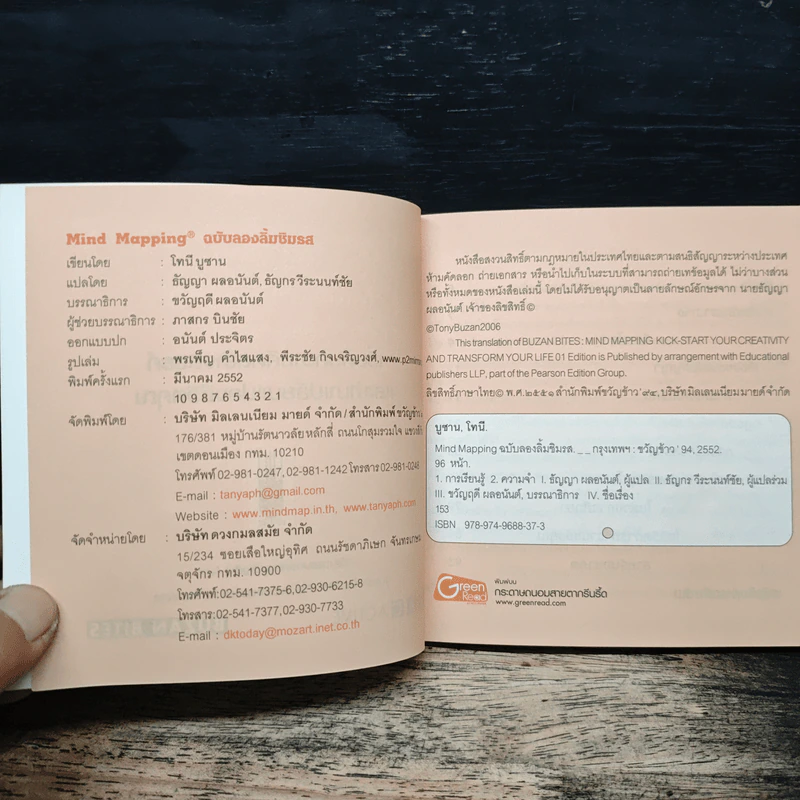 Mind Mapping® ฉบับลองลิ้มชิมรส
เขียนโดย : โทนี บูซาน
แปลโดย : ธัญญา ผลอนันต์, ธัญกร วีระนนท์ชัย
บรรณาธิการ : ขวัญฤดี ผลอนันต์
ผู้ช่วยบรรณาธิการ : ภาสกร บินชัย
ออกแบบปก : อนันต์ ประจิตร
รูปเล่ม : พรเพ็ญ คำไสแสง, พีระชัย กิจเจริญวงศ์, www.p2mirror
พิมพ์ครั้งแรก : มีนาคม 2552
10 9 8 7 6 5 4 3 2 1
จัดพิมพ์โดย : บริษัท มิลเลนเนียม มายด์ จำกัด/สำนักพิมพ์ขวัญข้าว
176/381 หมู่บ้านรัตนาวลัยหลักสี่ ถนนโกสุมรวมใจ
เขตดอนเมือง กทม. 10210
โทรศัพท์ 02-981-0247, 02-981-1242 โทรสาร 02-981-0248
E-mail : tanyaph@gmail.com
Website : www.mindmap.in.th, www.tanyaph.com
จัดจำหน่ายโดย : บริษัท ดวงกมลสมัย จำกัด
15/234 ซอยเสือใหญ่อุทิศ ถนนรัชดาภิเษก จันทรเกษม
จตุจักร กทม. 10900
โทรศัพท์:02-541-7375-6,02-930-6215-8
โทรสาร:02-541-7377,02-930-7733
E-mail : dktoday@mozart.inet.co.th
หนังสือสงวนสิทธิ์ตามกฎหมายในประเทศไทยและตามสนธิสัญญาระหว่างประเทศ
ห้ามคัดลอก ถ่ายเอกสาร หรือนำไปเก็บในระบบที่สามารถถ่ายเทข้อมูลได้ ไม่ว่าบางส่วน
หรือทั้งหมดของหนังสือเล่มนี้ โดยไม่ได้รับอนุญาตเป็นลายลักษณ์อักษรจาก นายธัญญา
ผลอนันต์ เจ้าของลิขสิทธิ์©
©TonyBuzan2006
This translation of BUZAN BITES : MIND MAPPING KICK-START YOUR CREATIVITY
AND TRANSFORM YOUR LIFE 01 Edition is Published by arrangement with Educational
publishers LLP, part of the Pearson Edition Group.
ลิขสิทธิ์ภาษาไทย© พ.ศ.๒๕๕๑ สำนักพิมพ์ขวัญข้าว'๙๔, บริษัทมิลเลนเนียม มายด์ จำกัด
บูซาน, โทนี.
Mind Mapping ฉบับลองลิ้มชิมรส. _ _ กรุงเทพฯ : ขวัญข้าว ' 94, 2552.
96 หน้า.
1. การเรียนรู้ 2. ความจำ I. ธัญญา ผลอนันต์, ผู้แปล II. ธัญกร วีระนนท์ชัย, ผู้แปลร่วม
III. ขวัญฤดี ผลอนันต์, บรรณาธิการ IV. ชื่อเรื่อง
153
ISBN 978-974-9688-37-3
Green Read
พิมพ์บน
กระดาษถนอมสายตากรีนรี้ด
www.greenread.com